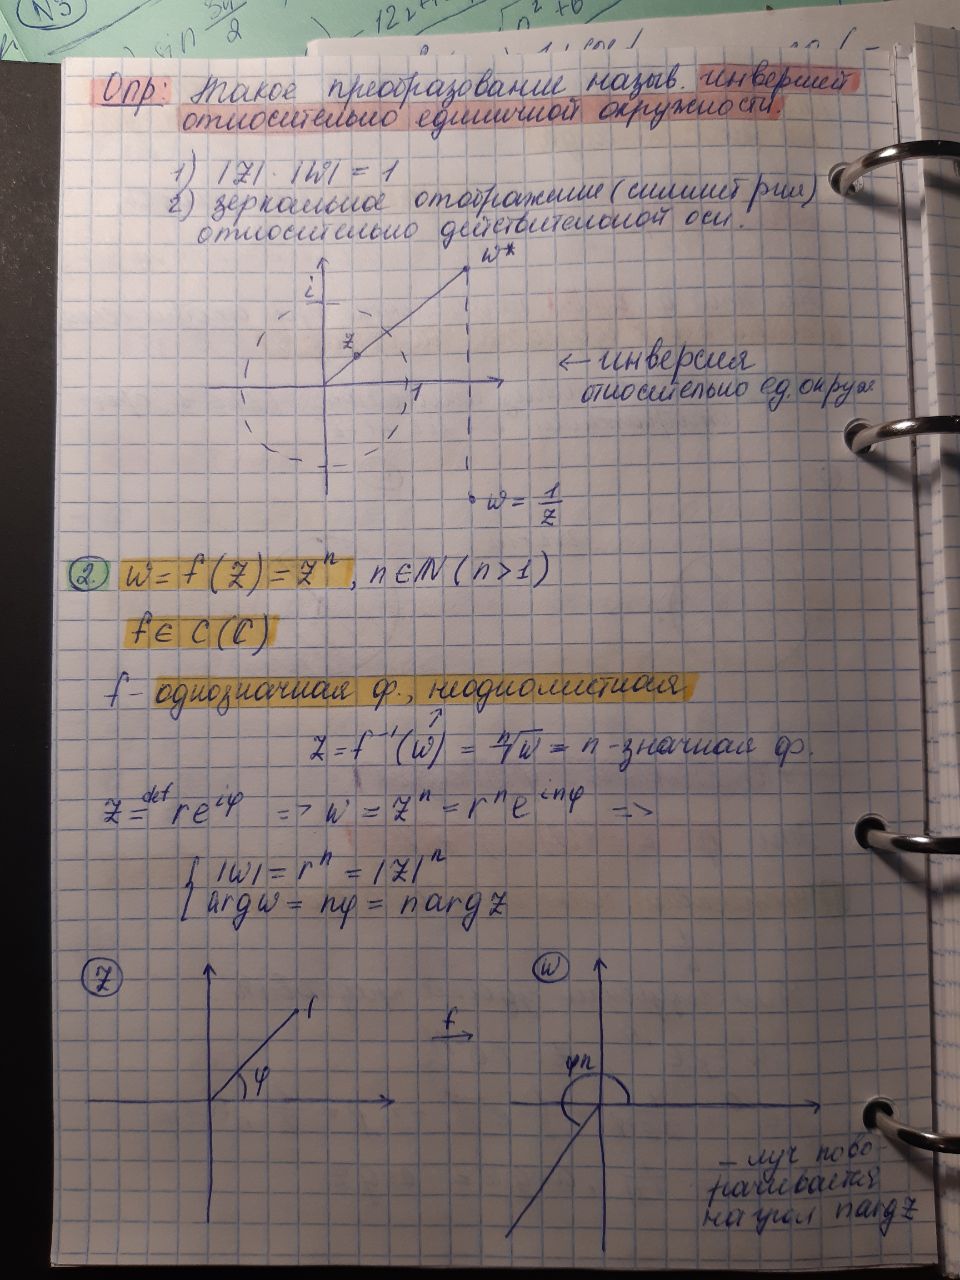 N3
sin 3y/2
Опр: Такое преобразование назыв. инверсией
относительно единичной окружности.
1) |z| · |w| = 1
2) зеркальное отображение (симметрия)
относительно действительной оси.
w*
i
z
1
← инверсия
относительно ед. окруж
w = 1/z
2. w = f(z) = z^n, n ∈ N (n > 1)
f ∈ C(ℂ)
f - однозначная ф., неоднолистная
↑
z = f^-1(w) = ⁿ√w = n-значная ф.
z =def re^iφ => w = z^n = r^n e^inφ =>
{ |w| = r^n = |z|^n
arg w = nφ = n arg z
z
w
f
φ
φn
- луч пово-
рачивается
на угол n arg z